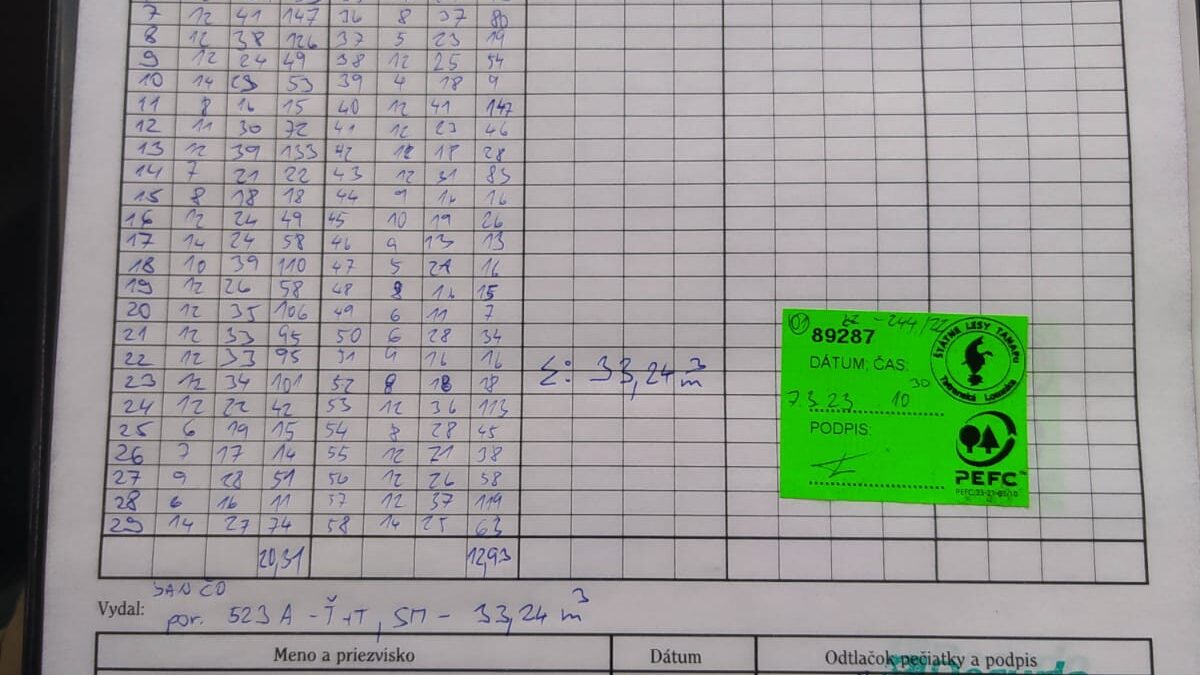 7 12 41 147 36 8 37 80
8 12 38 126 37 5 23 19
9 12 24 49 38 12 25 54
10 14 23 53 39 4 18 9
11 8 16 15 40 12 41 147
12 11 30 72 41 12 23 46
13 12 39 133 42 12 18 28
14 7 21 22 43 12 31 83
15 8 18 18 44 9 16 16
16 12 24 49 45 10 19 26
17 14 24 58 46 9 13 13
18 10 39 110 47 5 21 16
19 12 26 58 48 8 16 15
20 12 35 106 49 6 11 7
21 12 33 95 50 6 28 34
22 12 33 95 51 9 16 16
23 12 34 101 52 8 18 18
24 12 22 42 53 12 36 113
25 6 19 15 54 8 28 45
26 7 17 14 55 12 21 38
27 9 28 51 56 12 26 58
28 6 16 11 57 12 37 119
29 14 27 74 58 14 25 63
20,31 12,93
Σ: 33,24 m³
01 - 244/22
89287
DÁTUM, ČAS:
7 3 23 10 30
PODPIS:
ŠTÁTNE LESY TANAPu
Tatranská Lomnica
PEFC™
Vydal: JANČO
por. 523 A - Ť+T, SM - 33,24 m³
Meno a priezvisko Dátum Odtlačok pečiatky a podpis